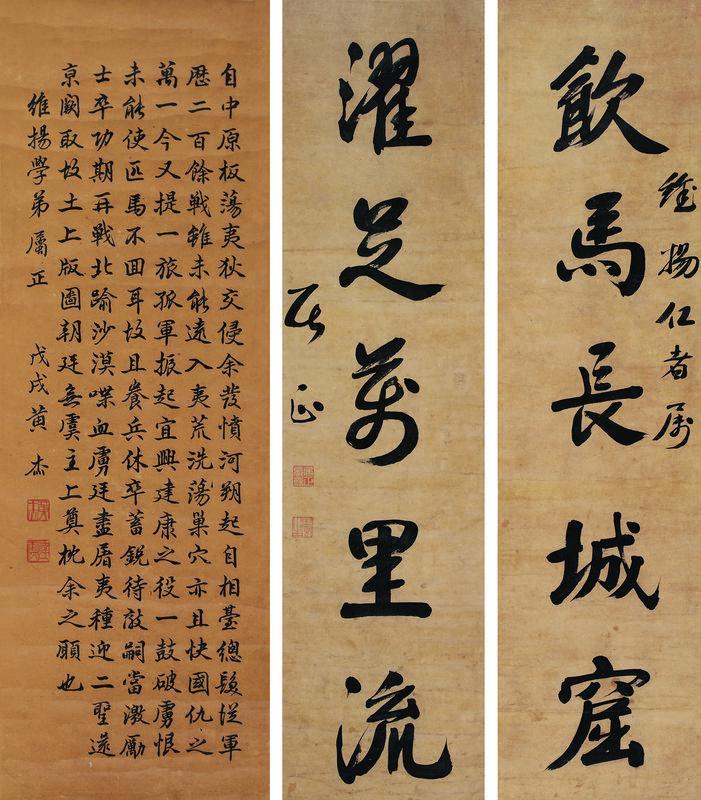 維揚仁者屬
飲馬長城窟
濯足萬里流
居正
自中原板蕩夷狄交侵余發憤河朔起自相臺總髮從軍
歷二百餘戰雖未能遠入夷荒洗蕩巢穴亦且快國仇之
萬一今又提一旅孤軍振起宜興建康之役一鼓破虜恨
未能使匹馬不回耳故且養兵休卒蓄銳待敵嗣當激勵
士卒功期再戰北踰沙漠喋血虜廷盡屠夷種迎二聖還
京闕取故土上版圖朝廷無虞主上奠枕余之願也
維揚學弟屬正 戊戌黃杰